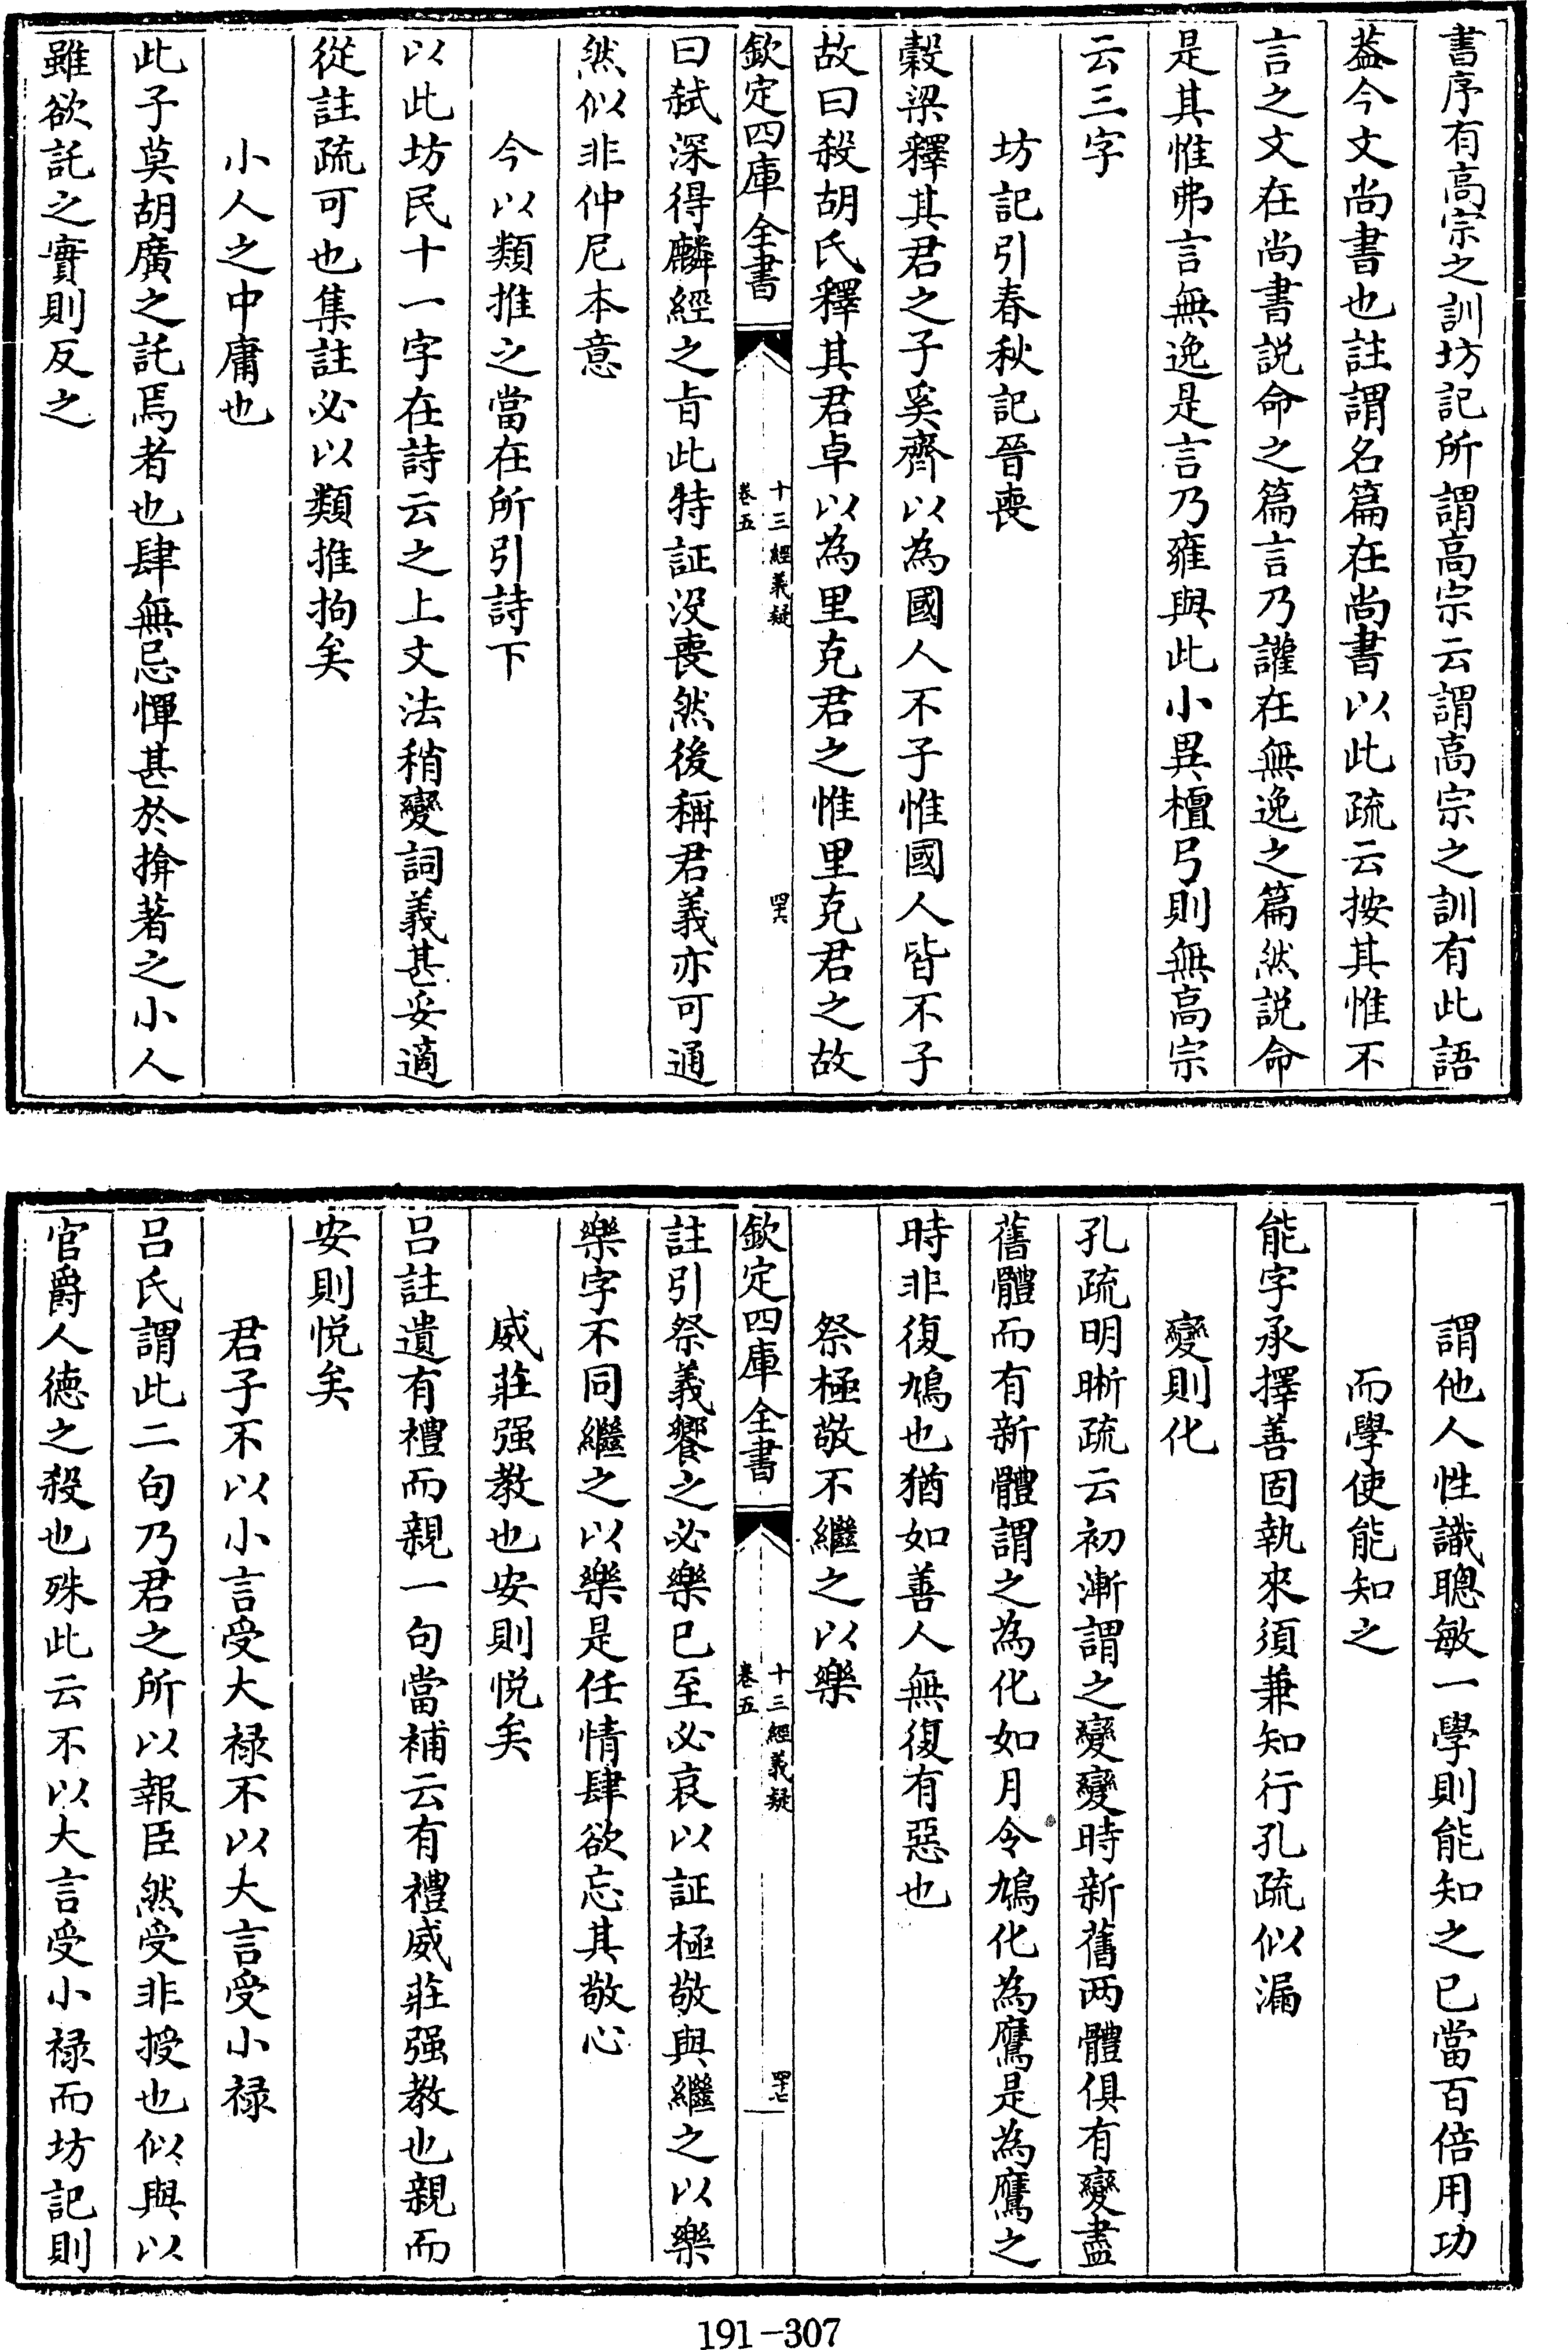 書序有高宗之訓坊記所謂高宗云謂高宗之訓有此語
葢今文尚書也註謂名篇在尚書以此疏云按其惟不
言之文在尚書説命之篇言乃讙在無逸之篇然説命
是其惟弗言無逸是言乃雍與此小異檀弓則無高宗
云三字
坊記引春秋記晉喪
穀梁釋其君之子奚齊以為國人不子惟國人皆不子
故曰殺胡氏釋其君卓以為里克君之惟里克君之故
欽定四庫全書
十三經義疑
卷五
四六
曰弑深得麟經之旨此特証没喪然後稱君義亦可通
然似非仲尼本意
今以類推之當在所引詩下
以此坊民十一字在詩云之上文法稍變詞義甚妥適
從註疏可也集註必以類推拘矣
小人之中庸也
此子莫胡廣之託焉者也肆無忌憚甚於揜著之小人
雖欲託之實則反之
謂他人性識聰敏一學則能知之已當百倍用功
而學使能知之
能字承擇善固執來須兼知行孔疏似漏
變則化
孔疏明晰疏云初漸謂之變變時新舊两體俱有變盡
舊體而有新體謂之為化如月令鳩化為鷹是為鷹之
時非復鳩也猶如善人無復有惡也
祭極敬不繼之以樂
欽定四庫全書
十三經義疑
卷五
四十七
註引祭義饗之必樂已至必哀以証極敬與繼之以樂
樂字不同繼之以樂是任情肆欲忘其敬心
威莊强教也安則悦矣
吕註遺有禮而親一句當補云有禮威莊强教也親而
安則悦矣
君子不以小言受大禄不以大言受小禄
吕氏謂此二句乃君之所以報臣然受非授也似與以
官爵人徳之殺也殊此云不以大言受小禄而坊記則
191-307